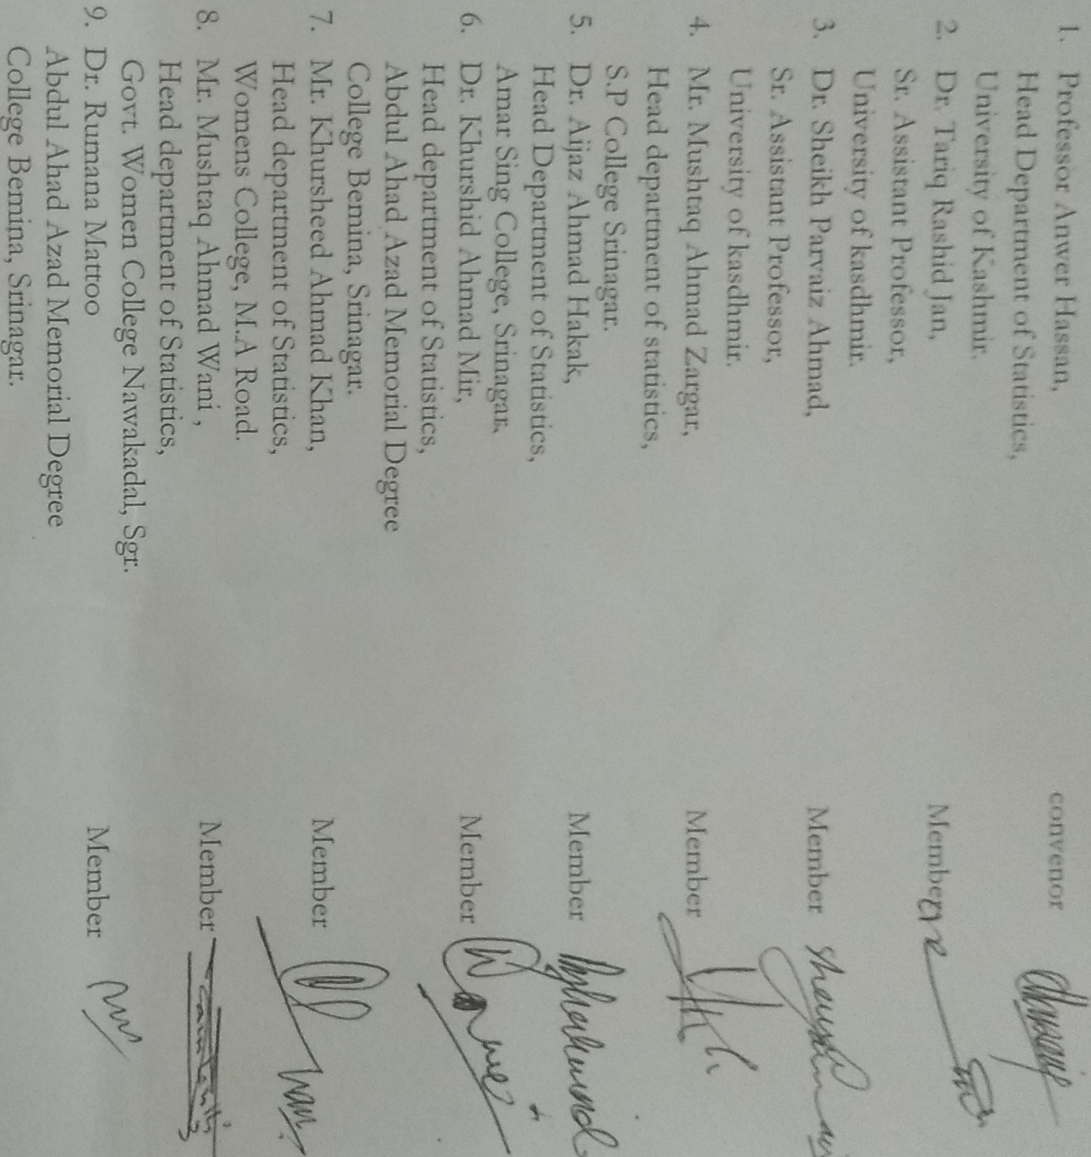 1. Professor Anwer Hassan,
Head Department of Statistics,
University of Kashmir.
convenor
2. Dr. Tariq Rashid Jan,
Sr. Assistant Professor,
University of kasdhmir.
Member
3. Dr. Sheikh Parvaiz Ahmad,
Sr. Assistant Professor,
University of kasdhmir.
Member
4. Mr. Mushtaq Ahmad Zargar,
Head department of statistics,
S.P College Srinagar.
Member
5. Dr. Aijaz Ahmad Hakak,
Head Department of Statistics,
Amar Sing College, Srinagar.
Member
6. Dr. Khurshid Ahmad Mir,
Head department of Statistics,
Abdul Ahad Azad Memorial Degree
College Bemina, Srinagar.
Member
7. Mr. Khursheed Ahmad Khan,
Head department of Statistics,
Womens College, M.A Road.
Member
8. Mr. Mushtaq Ahmad Wani,
Head department of Statistics,
Govt. Women College Nawakadal, Sgr.
Member
9. Dr. Rumana Mattoo
Abdul Ahad Azad Memorial Degree
College Bemina, Srinagar.
Member